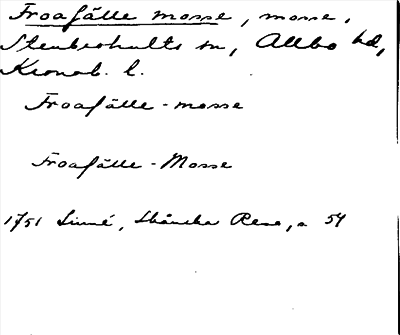 Froafälle mosse, mosse,
Stenbrohults sn, Allbo hd,
Kronob. l.
Froafälle-mosse
Froafälle-Mosse
1751 Linné, Skånska Resa, s 54